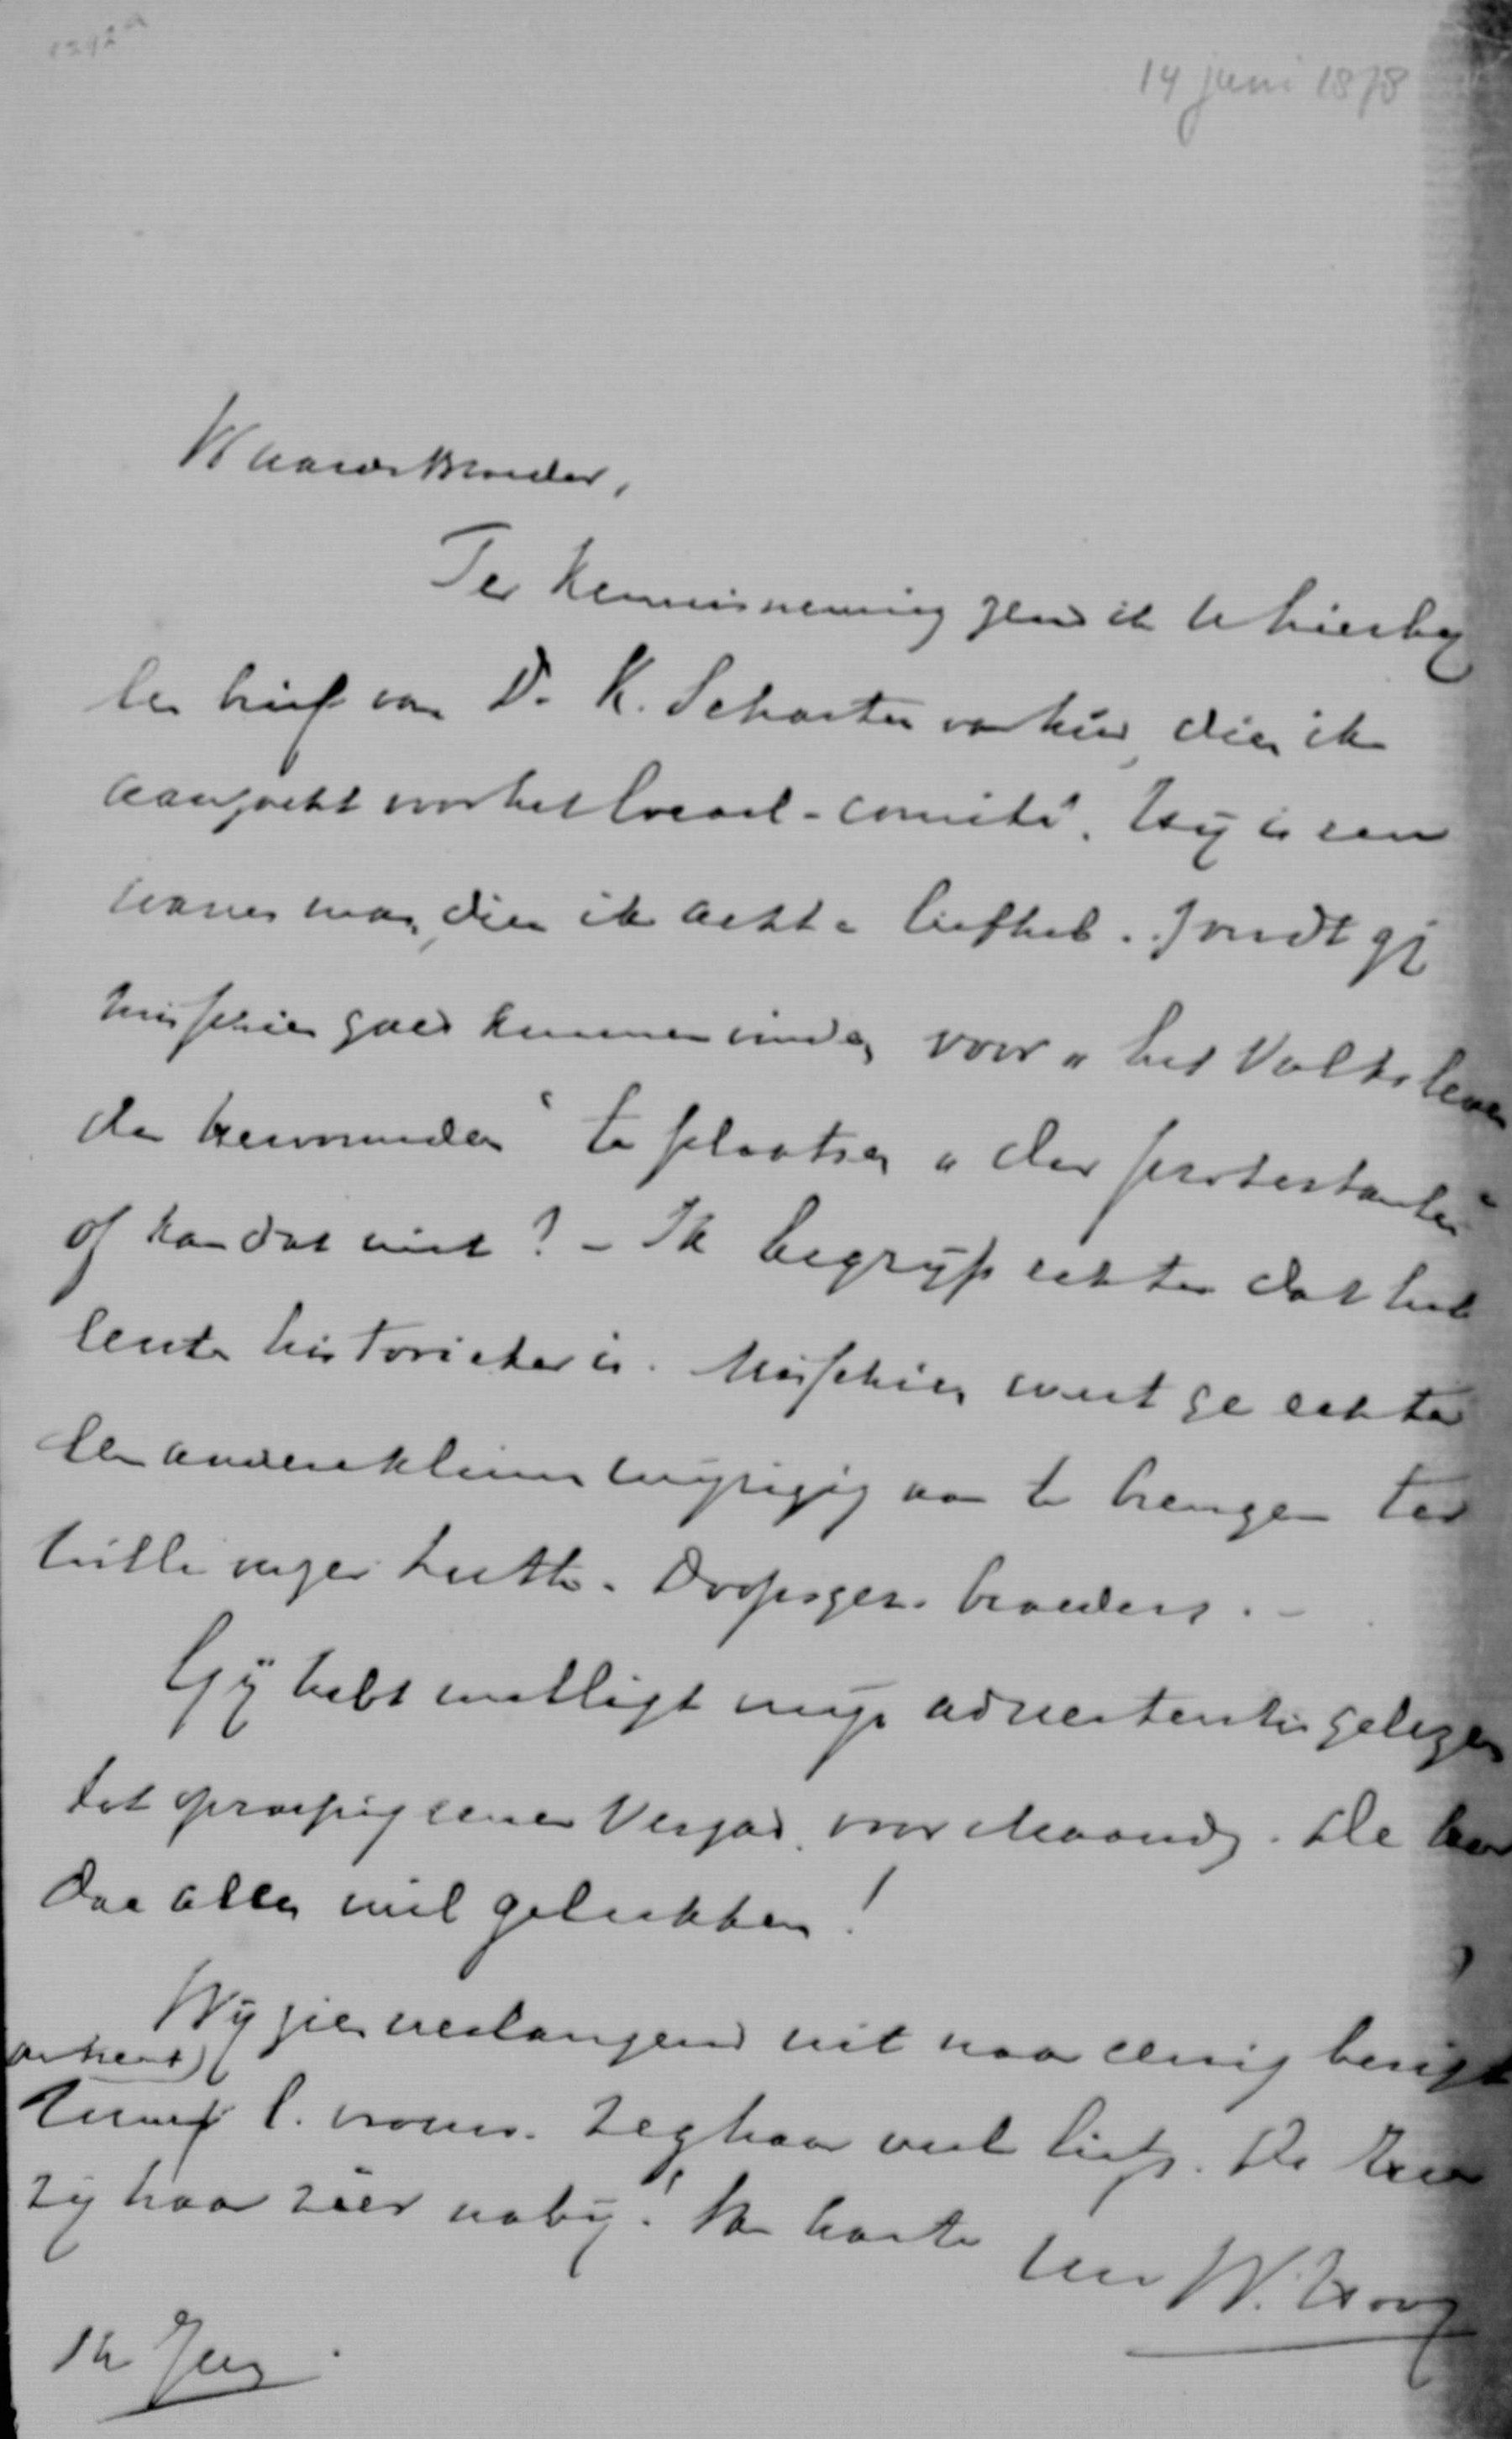 14 juni 1878
Waarde Broeder,
Ter kennisneming zend ik U hierby
een brief van Dr. K. Schaster van hier, dien ik
aanzocht voor het locaal-comité. Hy is een
man, dien ik acht & liefheb. Zoudt gy
misschien goed kunnen vinden voor "het Volksleven
der hervormden" te plaatsen "der protestanten"
of kan dat niet? - Ik begryp echter dat het
eerste historischer is. Misschien weet ge echter
een andere kleine wyziging aan te brengen ter
wille onzer Luth. Doopsgez. broeders. -
Gy hebt wellicht myn advertentie gelezen
tot oproeping eener Vergad. voor Maandag. De Heer
doe alles wel gelukken!
Wy zien verlangend uit naar eenig bericht
omtrent
Uwe l. vrouw. Zeg haar veel liefs. De Heer
zy haar zeer naby! Van harte
Uw W. Hoog
14 Juny